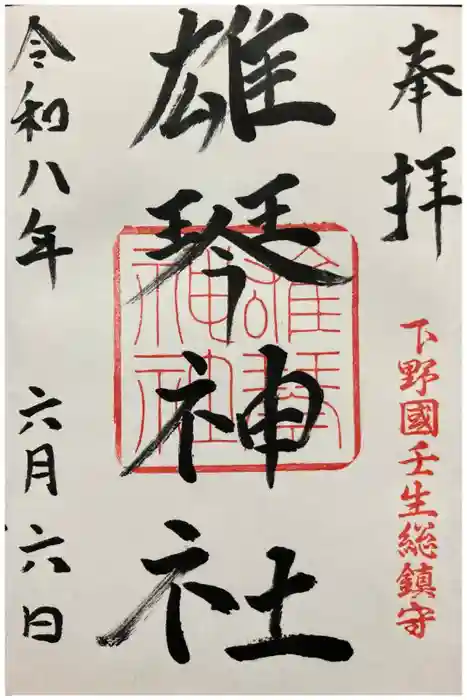 奉拝
下野國壬生総鎮守
雄琴神社
雄琴
神社
令和八年 六月六日